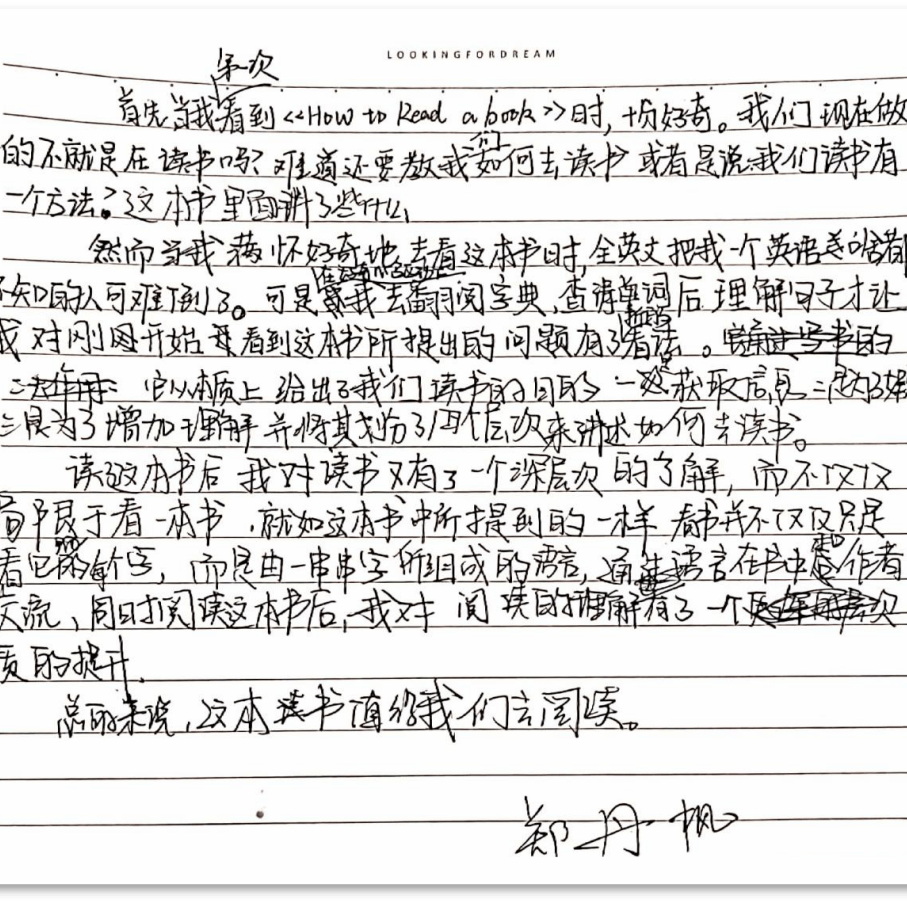 LOOKINGFORDREAM
第一次
首先当我看到《How to Read a book》时,十分好奇。我们现在做
们
的不就是在读书吗?难道还要教我如何去读书或者是说我们读书有
一个方法?这本书里面讲了些什么
然而当我满怀好奇地去看这本书时,全英文把我一个英语差的啥都
不知的人可难倒了。可是我去翻阅字典,查清单词后理解句子才让
我对刚刚开始看到这本书所提出的问题有了看法。
它从本质上给出了我们读书的目的一是获取信息二是为了娱
三是为了增加理解并将其划分了四个层次来讲述如何去读书。
读这本书后我对读书又有了一个深层次的了解,而不仅仅
局限于看一本书,就如这本书中所提到的一样看书并不仅仅只是
看它的每个字,而是由一串串字所组成的语言,通过语言在书中和作者
交流、同时阅读这本书后,我对阅读的理解有了一个
质的提升.
总的来说,这本读书值得我们去阅读。
郑丹枫